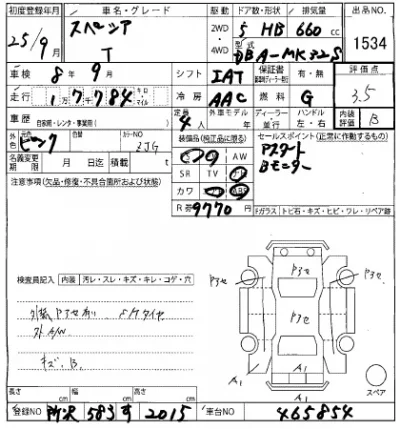 初度登録年月 車名・グレード 駆動 ドア数・形状 排気量 出品NO.
25/9月 スペーシア T 2WD・4WD 5 HB 660 cc 1534
型式 DBA-MK32S
車検 8年9月 シフト IAT 保証書 有・無 評価点
走行 1万7,784 キロ マイル 冷房 AAC 燃料 G 3.5
車歴 自家用・レンタ・事業用( ) 定員 4人 外車モデル 年 ディーラー 並行 ハンドル 左・右 内装評価 B
外色 元色 ピンク 色替 カラーNO ZJG 装備品(純正品に限る) セールスポイント(正常に作動するもの)
名義変更期限 月 日迄 積載 t AW アスタート
注意事項(欠品・修復・不具合箇所および状態) SR TV Bモニター
カワ
R券 9770円 Fガラス トビ石・キズ・ヒビ・ワレ・リペア跡
検査員記入 内装 汚レ・スレ・キズ・キレ・コゲ・穴
アセ アセ アセ
外装アセ有り タイヤ
外A/W
キズ、B.
A1 A1
スペア
長さ cm 幅 cm 高さ cm
登録NO 所沢 583す 2015 車台NO 465854